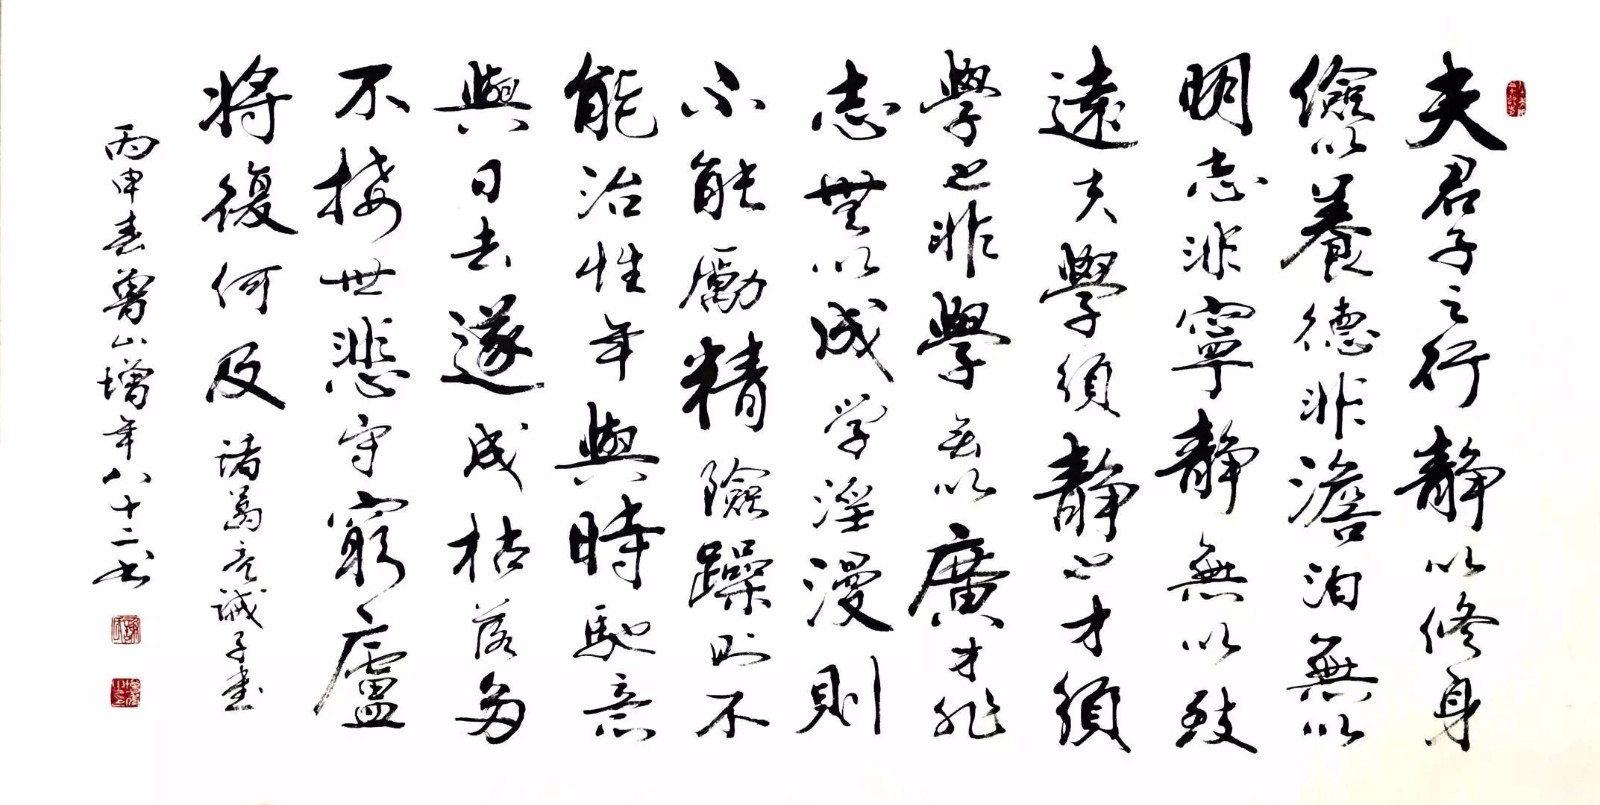 夫君子之行静以修身
儉以養德非澹泊無以
明志非寧静無以致
遠夫學須静也才須
學也非學无以廣才非
志無以成学淫漫則
不能勵精險躁則不
能治性年與時馳意
與日去遂成枯落多
不接世悲守窮廬
將復何及 諸葛亮誡子書
丙申春魯山增年八十二书